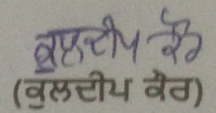 ਕੁਲਦੀਪ ਕੌਰ
(ਕੁਲਦੀਪ ਕੌਰ)